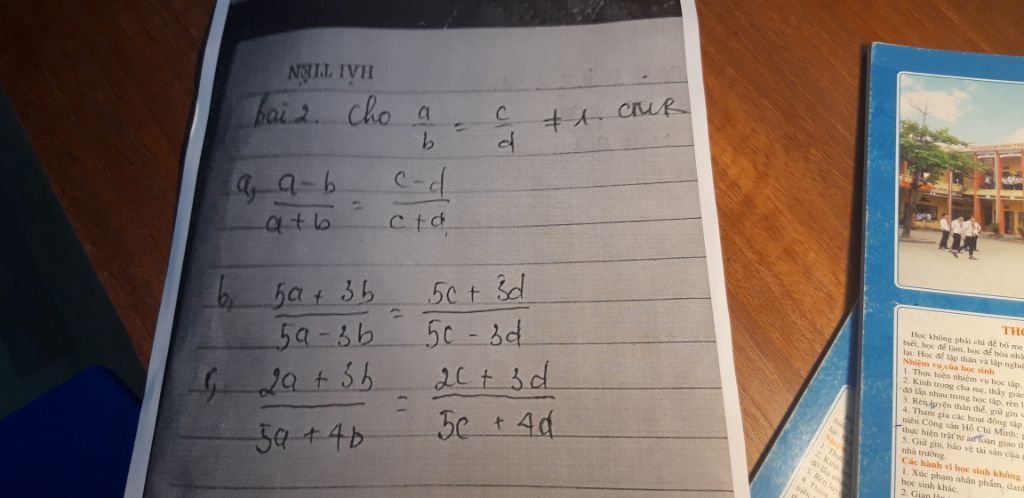 HẢI TIẾN
bài 2. Cho a/b = c/d ≠ 1. CMR
a, a-b/a+b = c-d/c+d
b, 5a + 3b/5a - 3b = 5c + 3d/5c - 3d
c, 2a + 3b/5a + 4b = 2c + 3d/5c + 4d
Học không phải chỉ để bố mẹ
biết, học để làm, học để hòa nhập
lại: Học để lập thân và lập nghiệp
Nhiệm vụ của học sinh
1. Thực hiện nhiệm vụ học tập,
2. Kính trọng cha mẹ, thầy giáo
đỡ lẫn nhau trong học tập, rèn
3. Rèn luyện thân thể, giữ gìn
4. Tham gia các hoạt động tập
niên Cộng sản Hồ Chí Minh;
thực hiện trật tự an toàn giao
5. Giữ gìn, bảo vệ tài sản của
nhà trường.
Các hành vi học sinh không
1. Xúc phạm nhân phẩm, danh
học sinh khác.
2. Gian lận